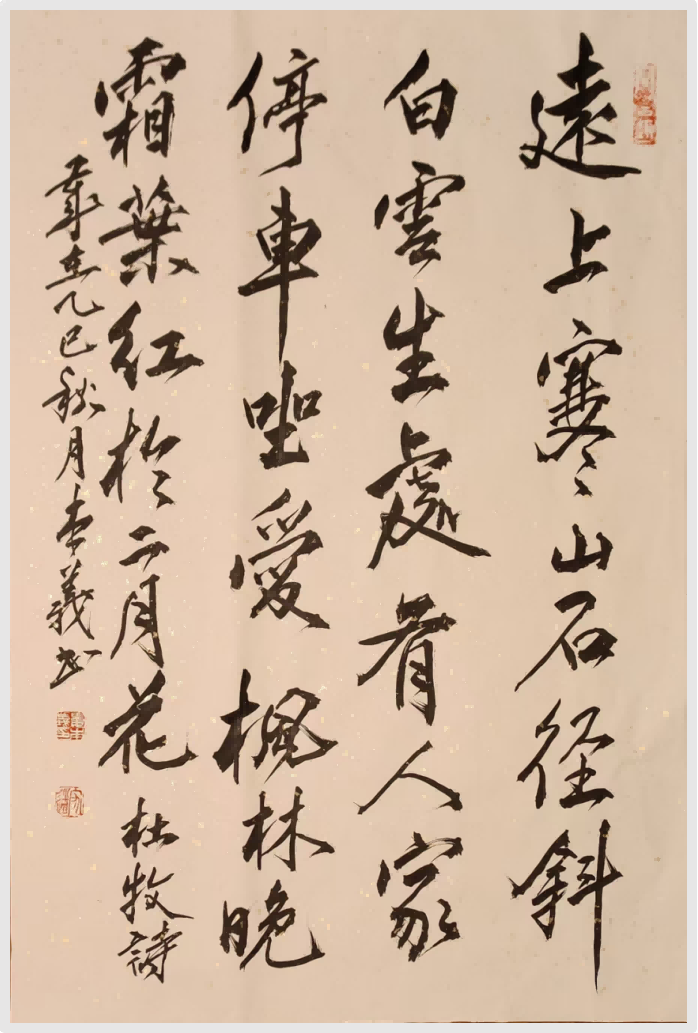 遠上寒山石径斜
白雲生處有人家
停車坐愛楓林晚
霜葉紅於二月花 杜牧詩
歲在乙巳秋月李義书